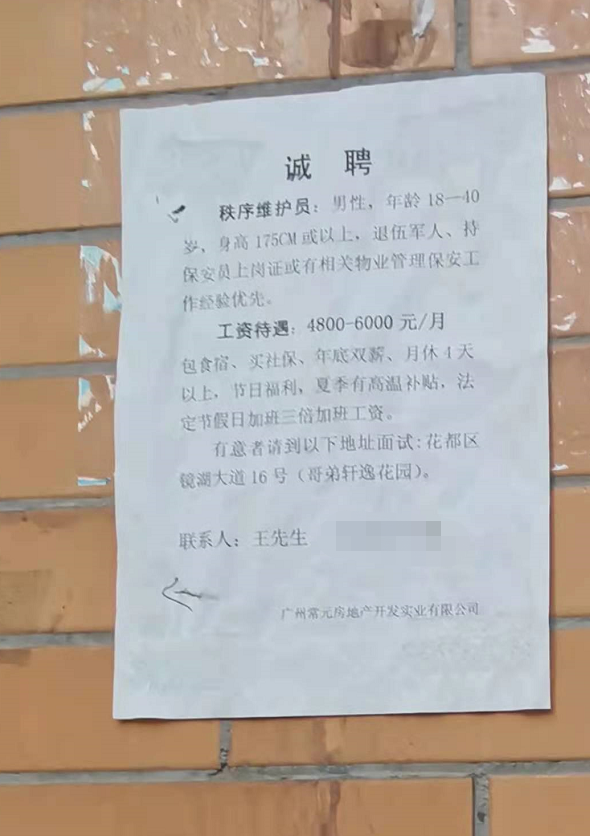 诚 聘
秩序维护员：男性，年龄 18—40
岁、身高 175CM 或以上，退伍军人、持
保安员上岗证或有相关物业管理保安工
作经验优先。
工资待遇：4800-6000 元/月
包食宿、买社保、年底双薪、月休 4 天
以上，节日福利，夏季有高温补贴，法
定节假日加班三倍加班工资。
有意者请到以下地址面试：花都区
镜湖大道 16 号（哥弟轩逸花园）。
联系人：王先生
广州常元房地产开发实业有限公司